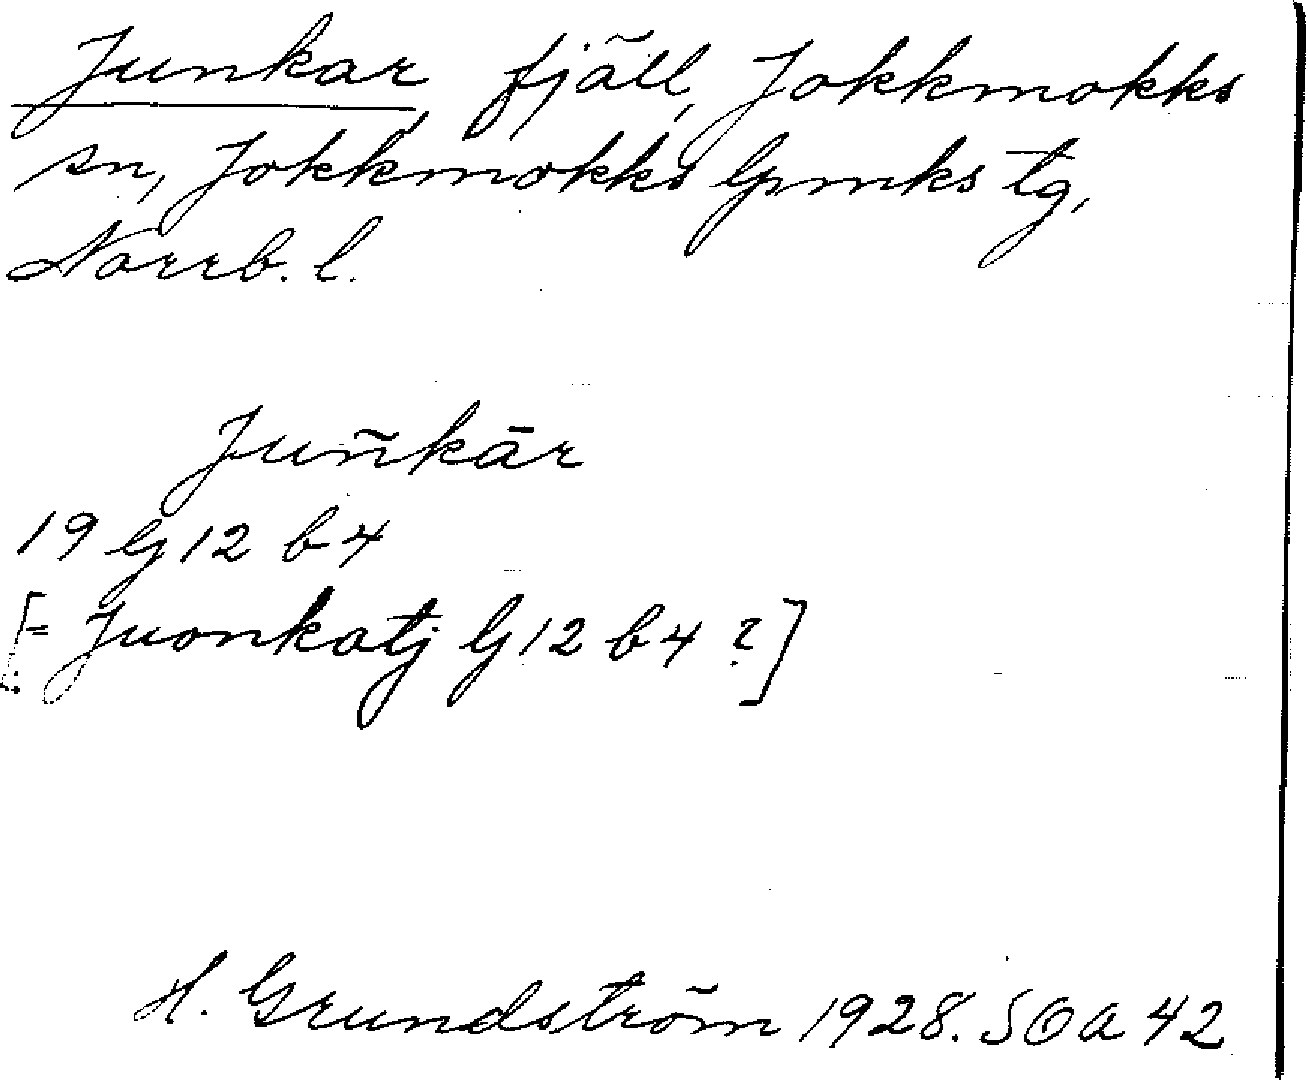 Junkar, fjäll, Jokkmokks
sn, Jokkmokks lpmks tg,
Norrb. l.
Juñkār
19 G 12 b 4
[= Juonkatj G 12 b 4 ?]
H. Grundström 1928. SOA 42